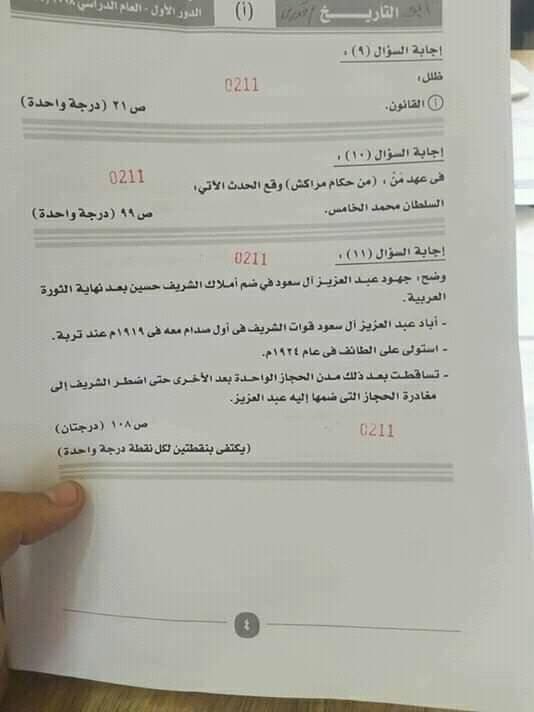 التاريخ
(أ)
الدور الأول - العام الدراسي
إجابة السؤال (٩) :
ظلل:
0211
أ القانون.
ص ٢١ (درجة واحدة)
إجابة السؤال (١٠) :
0211
فى عهد مَنْ : (من حكام مراكش) وقع الحدث الآتي:
السلطان محمد الخامس.
ص ٩٩ (درجة واحدة)
إجابة السؤال (١١) :
0211
وضح: جهود عبد العزيز آل سعود في ضم أملاك الشريف حسين بعد نهاية الثورة
العربية.
- أباد عبد العزيز آل سعود قوات الشريف فى أول صدام معه فى ١٩١٩م عند تربة.
- استولى على الطائف فى عام ١٩٢٤م.
- تساقطت بعد ذلك مدن الحجاز الواحدة بعد الأخرى حتى اضطر الشريف إلى
مغادرة الحجاز التى ضمها إليه عبد العزيز.
ص ١٠٨ (درجتان)
0211
(يكتفى بنقطتين لكل نقطة درجة واحدة)
٤